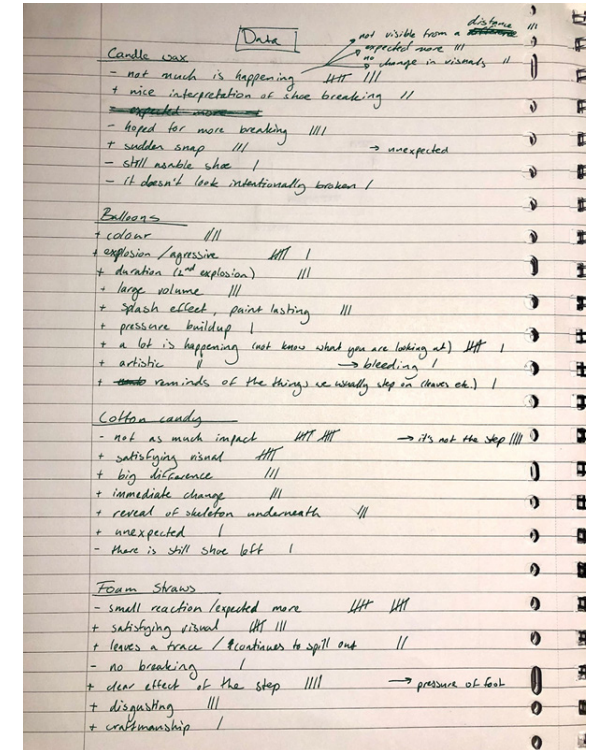 Data
→ not visible from a distance III
→ expected more III
→ no change in visuals II
Candle wax
- not much is happening IIII III
+ nice interpretation of shoe breaking II
expected more
- hoped for more breaking IIII
+ sudden snap III → unexpected
- still usable shoe I
- it doesn't look intentionally broken I
Balloons
+ colour IIII
+ explosion /agressive IIII I
+ duration (2nd explosion) III
+ large volume III
+ splash effect, paint lasting III
+ pressure buildup I
+ a lot is happening (not know what you are looking at) IIII I
+ artistic II → bleeding I
+ reminds of the things we usually step on (leaves etc.) I
Cotton candy
- not as much impact IIII IIII → it's not the step IIII
+ satisfying visual IIII
+ big difference III
+ immediate change III
+ reveal of skeleton underneath III
+ unexpected I
- there is still shoe left I
Foam Straws
- small reaction /expected more IIII IIII
+ satisfying visual IIII III
+ leaves a trace / continues to spill out II
- no breaking I
+ clear effect of the step IIII → pressure of foot
+ disgusting III
+ craftmanship I